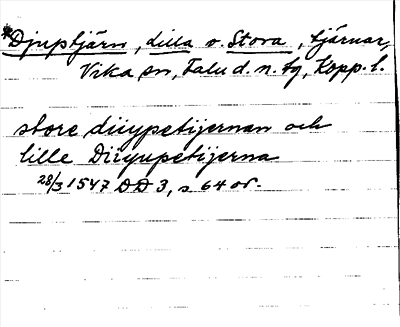 *Djuptjärn, Lilla o. Stora, tjärnar,
Vika sn, Falu d. n. tg, Kopp. l.
store diiypetijernan och
lille Diiyupetijerna
28/3 1547 DD 3, s 64 or.